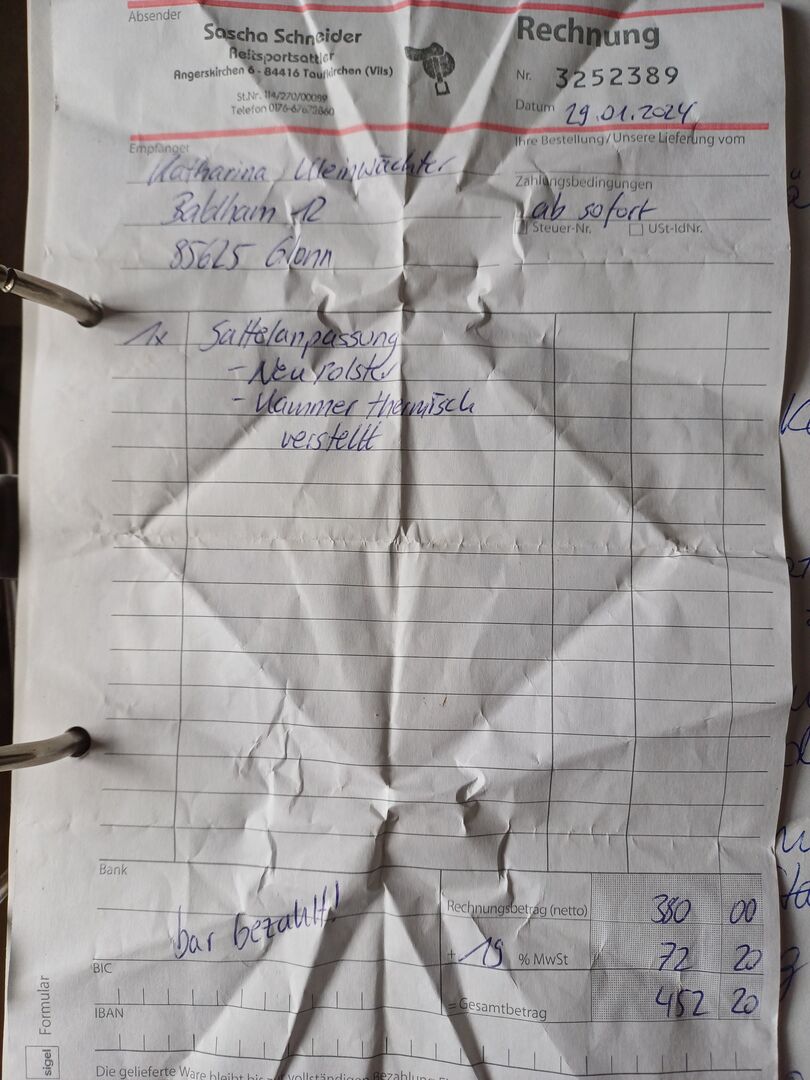 Absender
Sascha Schneider
Reitsportsattler
Angerskirchen 6 - 84416 Taufkirchen (Vils)
St.Nr. 114/270/00099
Telefon
Rechnung
Nr. 3252389
Datum 29.01.2024
Ihre Bestellung/Unsere Lieferung vom
Empfänger
Katharina Kleinwächter
Baldham 12
85625 Glonn
Zahlungsbedingungen
ab sofort
Steuer-Nr. USt-IdNr.
1x Sattelanpassung
- Neu Polster
- Kammer thermisch
verstellt
Bank
bar bezahlt!
Rechnungsbetrag (netto) 380 00
+ 19 % MwSt 72 20
= Gesamtbetrag 452 20
BIC
IBAN
sigel Formular
Die gelieferte Ware bleibt bis zur vollständigen Bezahlung